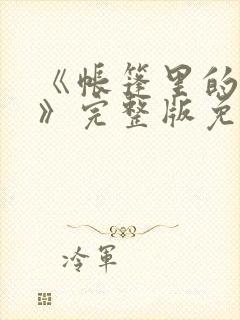 《帐篷里的
》完整版免
冷军